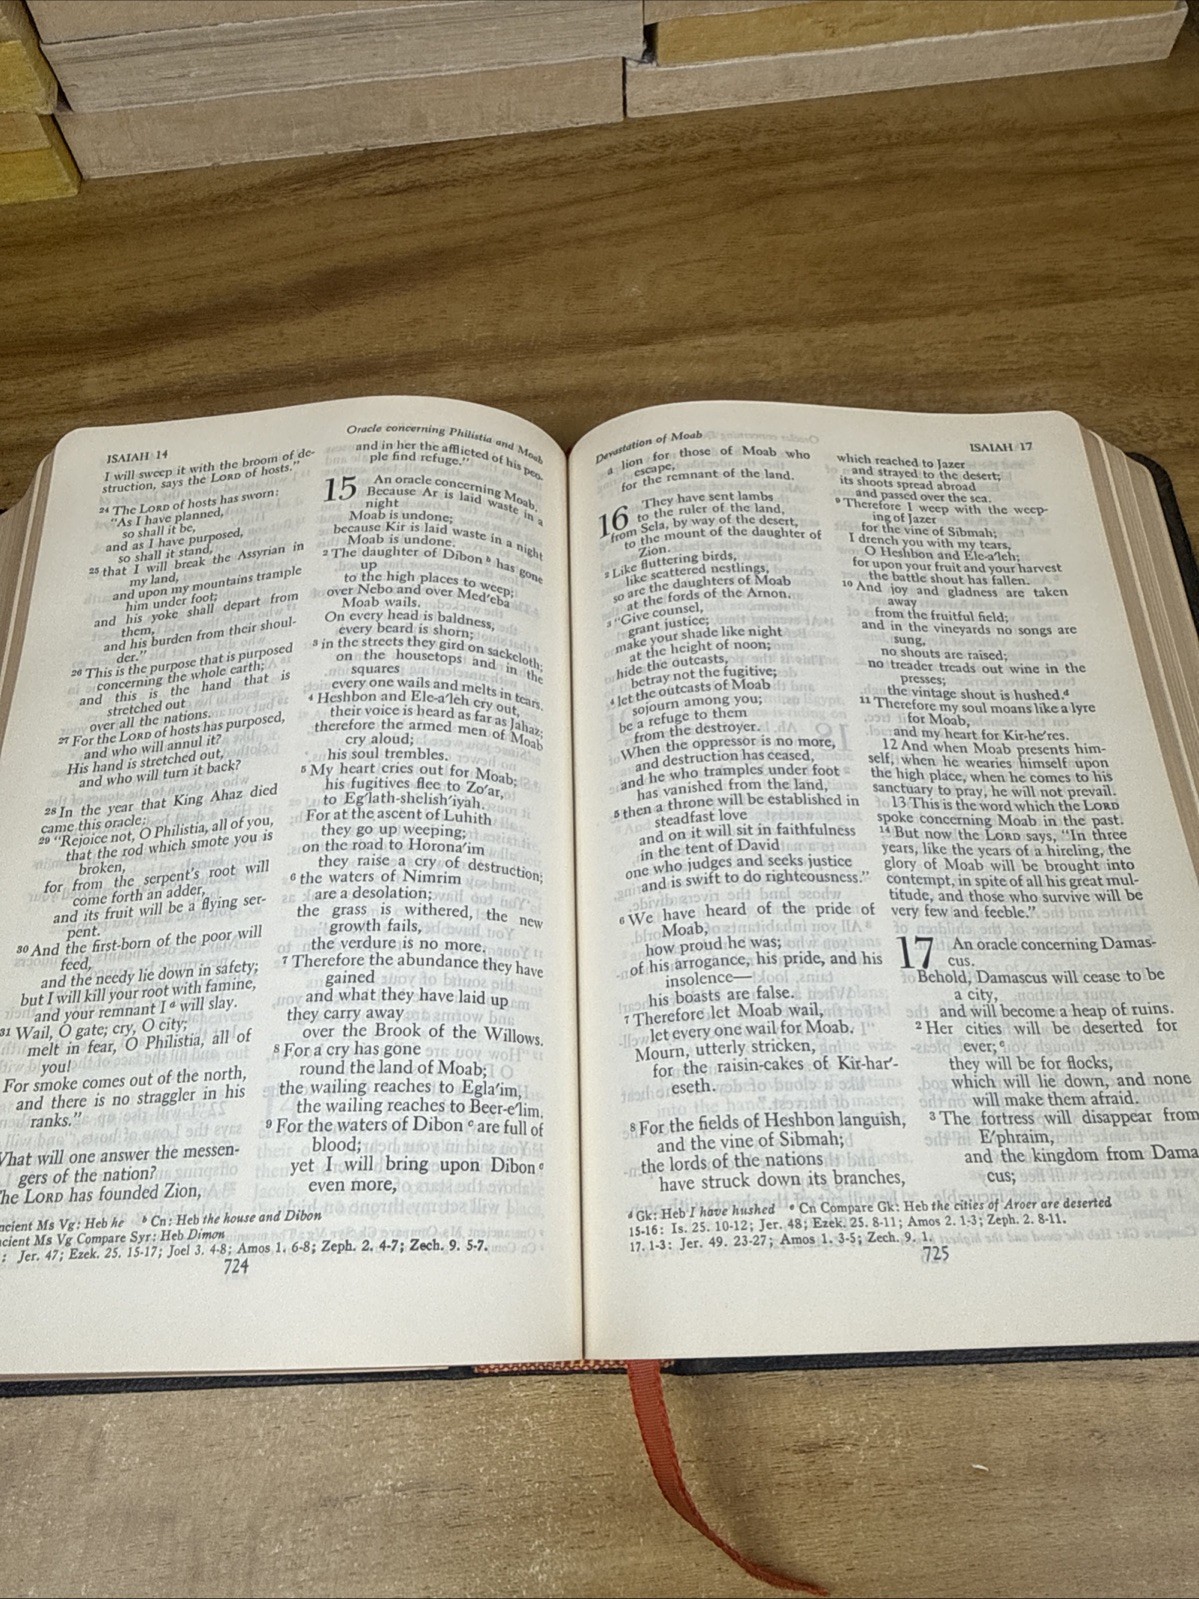 ISAIAH 14
Oracle concerning Philistia and Moab
I will sweep it with the broom of de-
struction, says the LORD of hosts."
24 The LORD of hosts has sworn:
"As I have planned,
so shall it be,
and as I have purposed,
so shall it stand,
25 that I will break the Assyrian in
my land,
and upon my mountains trample
him under foot;
and his yoke shall depart from
them,
and his burden from their shoul-
der."
26 This is the purpose that is purposed
concerning the whole earth;
and this is the hand that is
stretched out
over all the nations.
27 For the LORD of hosts has purposed,
and who will annul it?
His hand is stretched out,
and who will turn it back?
28 In the year that King Ahaz died
came this oracle:
29 "Rejoice not, O Philistia, all of you,
that the rod which smote you is
broken,
for from the serpent's root will
come forth an adder,
and its fruit will be a flying ser-
pent.
30 And the first-born of the poor will
feed,
and the needy lie down in safety;
but I will kill your root with famine,
and your remnant I a will slay.
31 Wail, O gate; cry, O city;
melt in fear, O Philistia, all of
you!
For smoke comes out of the north,
and there is no straggler in his
ranks."
What will one answer the messen-
gers of the nation?
The LORD has founded Zion,
and in her the afflicted of his peo-
ple find refuge."
15 An oracle concerning Moab.
Because Ar is laid waste in a
night
Moab is undone;
because Kir is laid waste in a night
Moab is undone.
2 The daughter of Dibon b has gone
up
to the high places to weep;
over Nebo and over Med'eba
Moab wails.
On every head is baldness,
every beard is shorn;
3 in the streets they gird on sackcloth;
on the housetops and in the
squares
every one wails and melts in tears.
4 Heshbon and Ele-a'leh cry out,
their voice is heard as far as Jahaz;
therefore the armed men of Moab
cry aloud;
his soul trembles.
5 My heart cries out for Moab;
his fugitives flee to Zo'ar,
to Eg'lath-shelish'iyah.
For at the ascent of Luhith
they go up weeping;
on the road to Horona'im
they raise a cry of destruction;
6 the waters of Nimrim
are a desolation;
the grass is withered, the new
growth fails,
the verdure is no more.
7 Therefore the abundance they have
gained
and what they have laid up
they carry away
over the Brook of the Willows.
8 For a cry has gone
round the land of Moab;
the wailing reaches to Egla'im,
the wailing reaches to Beer-e'lim.
9 For the waters of Dibon c are full of
blood;
yet I will bring upon Dibon c
even more,
ncient Ms Vg: Heb he b Cn: Heb the house and Dibon
cient Ms Vg Compare Syr: Heb Dimon
: Jer. 47; Ezek. 25. 15-17; Joel 3. 4-8; Amos 1. 6-8; Zeph. 2. 4-7; Zech. 9. 5-7.
724
Devastation of Moab
ISAIAH 17
a lion for those of Moab who
escape,
for the remnant of the land.
16 They have sent lambs
to the ruler of the land,
from Sela, by way of the desert,
to the mount of the daughter of
Zion.
2 Like fluttering birds,
like scattered nestlings,
so are the daughters of Moab
at the fords of the Arnon.
3 "Give counsel,
grant justice;
make your shade like night
at the height of noon;
hide the outcasts,
betray not the fugitive;
4 let the outcasts of Moab
sojourn among you;
be a refuge to them
from the destroyer.
When the oppressor is no more,
and destruction has ceased,
and he who tramples under foot
has vanished from the land,
5 then a throne will be established in
steadfast love
and on it will sit in faithfulness
in the tent of David
one who judges and seeks justice
and is swift to do righteousness."
6 We have heard of the pride of
Moab,
how proud he was;
of his arrogance, his pride, and his
insolence—
his boasts are false.
7 Therefore let Moab wail,
let every one wail for Moab.
Mourn, utterly stricken,
for the raisin-cakes of Kir-har'-
eseth.
8 For the fields of Heshbon languish,
and the vine of Sibmah;
the lords of the nations
have struck down its branches,
which reached to Jazer
and strayed to the desert;
its shoots spread abroad
and passed over the sea.
9 Therefore I weep with the weep-
ing of Jazer
for the vine of Sibmah;
I drench you with my tears,
O Heshbon and Ele-a'leh;
for upon your fruit and your harvest
the battle shout has fallen.
10 And joy and gladness are taken
away
from the fruitful field;
and in the vineyards no songs are
sung,
no shouts are raised;
no treader treads out wine in the
presses;
the vintage shout is hushed. d
11 Therefore my soul moans like a lyre
for Moab,
and my heart for Kir-he'res.
12 And when Moab presents him-
self, when he wearies himself upon
the high place, when he comes to his
sanctuary to pray, he will not prevail.
13 This is the word which the LORD
spoke concerning Moab in the past.
14 But now the LORD says, "In three
years, like the years of a hireling, the
glory of Moab will be brought into
contempt, in spite of all his great mul-
titude, and those who survive will be
very few and feeble."
17 An oracle concerning Damas-
cus.
Behold, Damascus will cease to be
a city,
and will become a heap of ruins.
2 Her cities will be deserted for
ever; e
they will be for flocks,
which will lie down, and none
will make them afraid.
3 The fortress will disappear from
E'phraim,
and the kingdom from Dama
cus;
d Gk: Heb I have hushed e Cn Compare Gk: Heb the cities of Aroer are deserted
15-16: Is. 25. 10-12; Jer. 48; Ezek. 25. 8-11; Amos 2. 1-3; Zeph. 2. 8-11.
17. 1-3: Jer. 49. 23-27; Amos 1. 3-5; Zech. 9. 1.
725